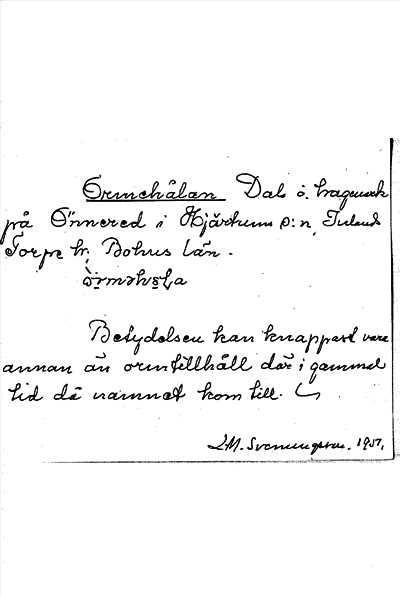 Ormehålan Dal o. hagmark
på Önnered i Hjärtums s:n, Inlands
Torpe hr, Bohus län.
Betydelsen kan knappast vara
annan än ormtillhåll där i gammal
tid då namnet kom till.
L.M. Svenungsson. 1951.